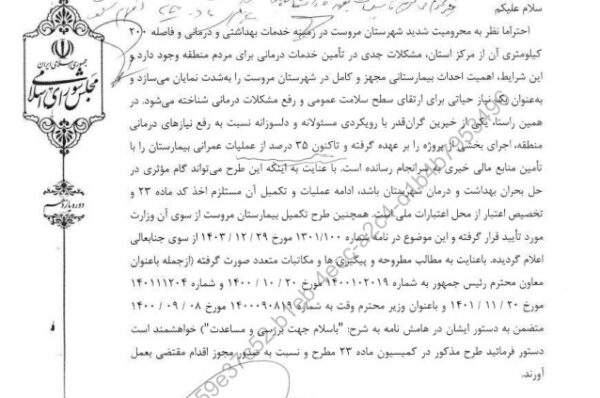 سلام علیکم
احتراما نظر به محرومیت شدید شهرستان مروست در زمینه خدمات بهداشتی و درمانی و فاصله ۲۰۰
کیلومتری آن از مرکز استان، مشکلات جدی در تأمین خدمات درمانی برای مردم منطقه وجود دارد و
این شرایط، اهمیت احداث بیمارستانی مجهز و کامل در شهرستان مروست را به‌شدت نمایان می‌سازد و
به‌عنوان یک نیاز حیاتی برای ارتقای سطح سلامت عمومی و رفع مشکلات درمانی شناخته می‌شود. در
همین راستا، یکی از خیرین گران‌قدر با رویکردی مسئولانه و دلسوزانه نسبت به رفع نیازهای درمانی
منطقه، اجرای بخشی از پروژه را بر عهده گرفته و تاکنون ۳۵ درصد از عملیات عمرانی بیمارستان را با
تأمین منابع مالی خیری به سرانجام رسانده است. با عنایت به اینکه این طرح می‌تواند گام مؤثری در
حل بحران بهداشت و درمان شهرستان باشد، ادامه عملیات و تکمیل آن مستلزم اخذ کد ماده ۲۳ و
تخصیص اعتبار از محل اعتبارات ملی است. همچنین طرح تکمیل بیمارستان مروست از سوی آن وزارت
مورد تأیید قرار گرفته و این موضوع در نامه شماره ۱۳۰۱/۱۰۰ مورخ ۲۹ / ۱۲ / ۱۴۰۳ از سوی جنابعالی
اعلام گردیده. باعنایت به مطالب مطروحه و پیگیری ها و مکاتبات متعدد صورت گرفته (ازجمله باعنوان
معاون محترم رئیس جمهور به شماره ۱۴۰۰۱۰۲۰۱۹ مورخ ۲۰ / ۱۰ / ۱۴۰۰ و شماره ۱۴۰۱۱۱۲۰۴
مورخ ۲۰ / ۱۱ / ۱۴۰۱ و باعنوان وزیر محترم وقت به شماره ۱۴۰۰۰۹۰۸۱۹ مورخ ۰۸ / ۰۹ / ۱۴۰۰
متضمن به دستور ایشان در هامش نامه به شرح: "باسلام جهت بررسی و مساعدت") خواهشمند است
دستور فرمائید طرح مذکور در کمیسیون ماده ۲۳ مطرح و نسبت به صدور مجوز اقدام مقتضی بعمل
آورند.
جمهوری اسلامی ایران
مجلس شورای اسلامی
دوره یازدهم